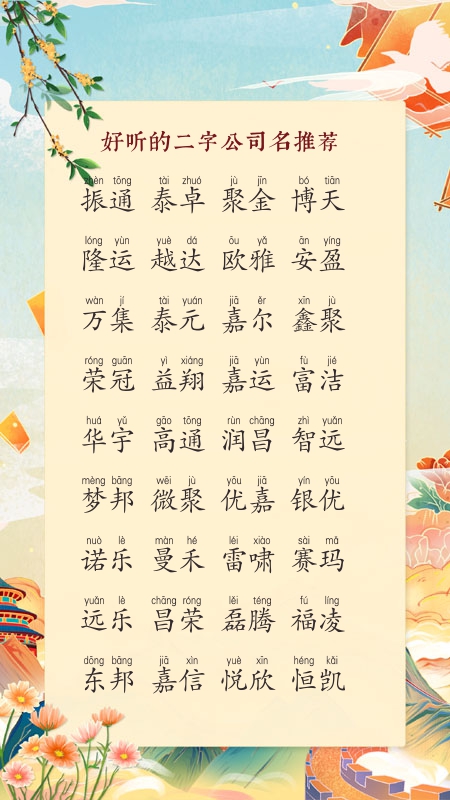 好听的二字公司名推荐
zhèn tōng tài zhuó jù jīn bó tiān
振通 泰卓 聚金 博天
lóng yùn yuè dá ōu yǎ ān yíng
隆运 越达 欧雅 安盈
wàn jí tài yuán jiā ěr xīn jù
万集 泰元 嘉尔 鑫聚
róng guān yì xiáng jiā yùn fù jié
荣冠 益翔 嘉运 富洁
huá yǔ gāo tōng rùn chāng zhì yuǎn
华宇 高通 润昌 智远
mèng bāng wēi jù yōu jiā yín yōu
梦邦 微聚 优嘉 银优
nuò lè màn hé léi xiào sài mǎ
诺乐 曼禾 雷啸 赛玛
yuǎn lè chāng róng lěi téng fú líng
远乐 昌荣 磊腾 福凌
dōng bāng jiā xìn yuè xīn héng kǎi
东邦 嘉信 悦欣 恒凯